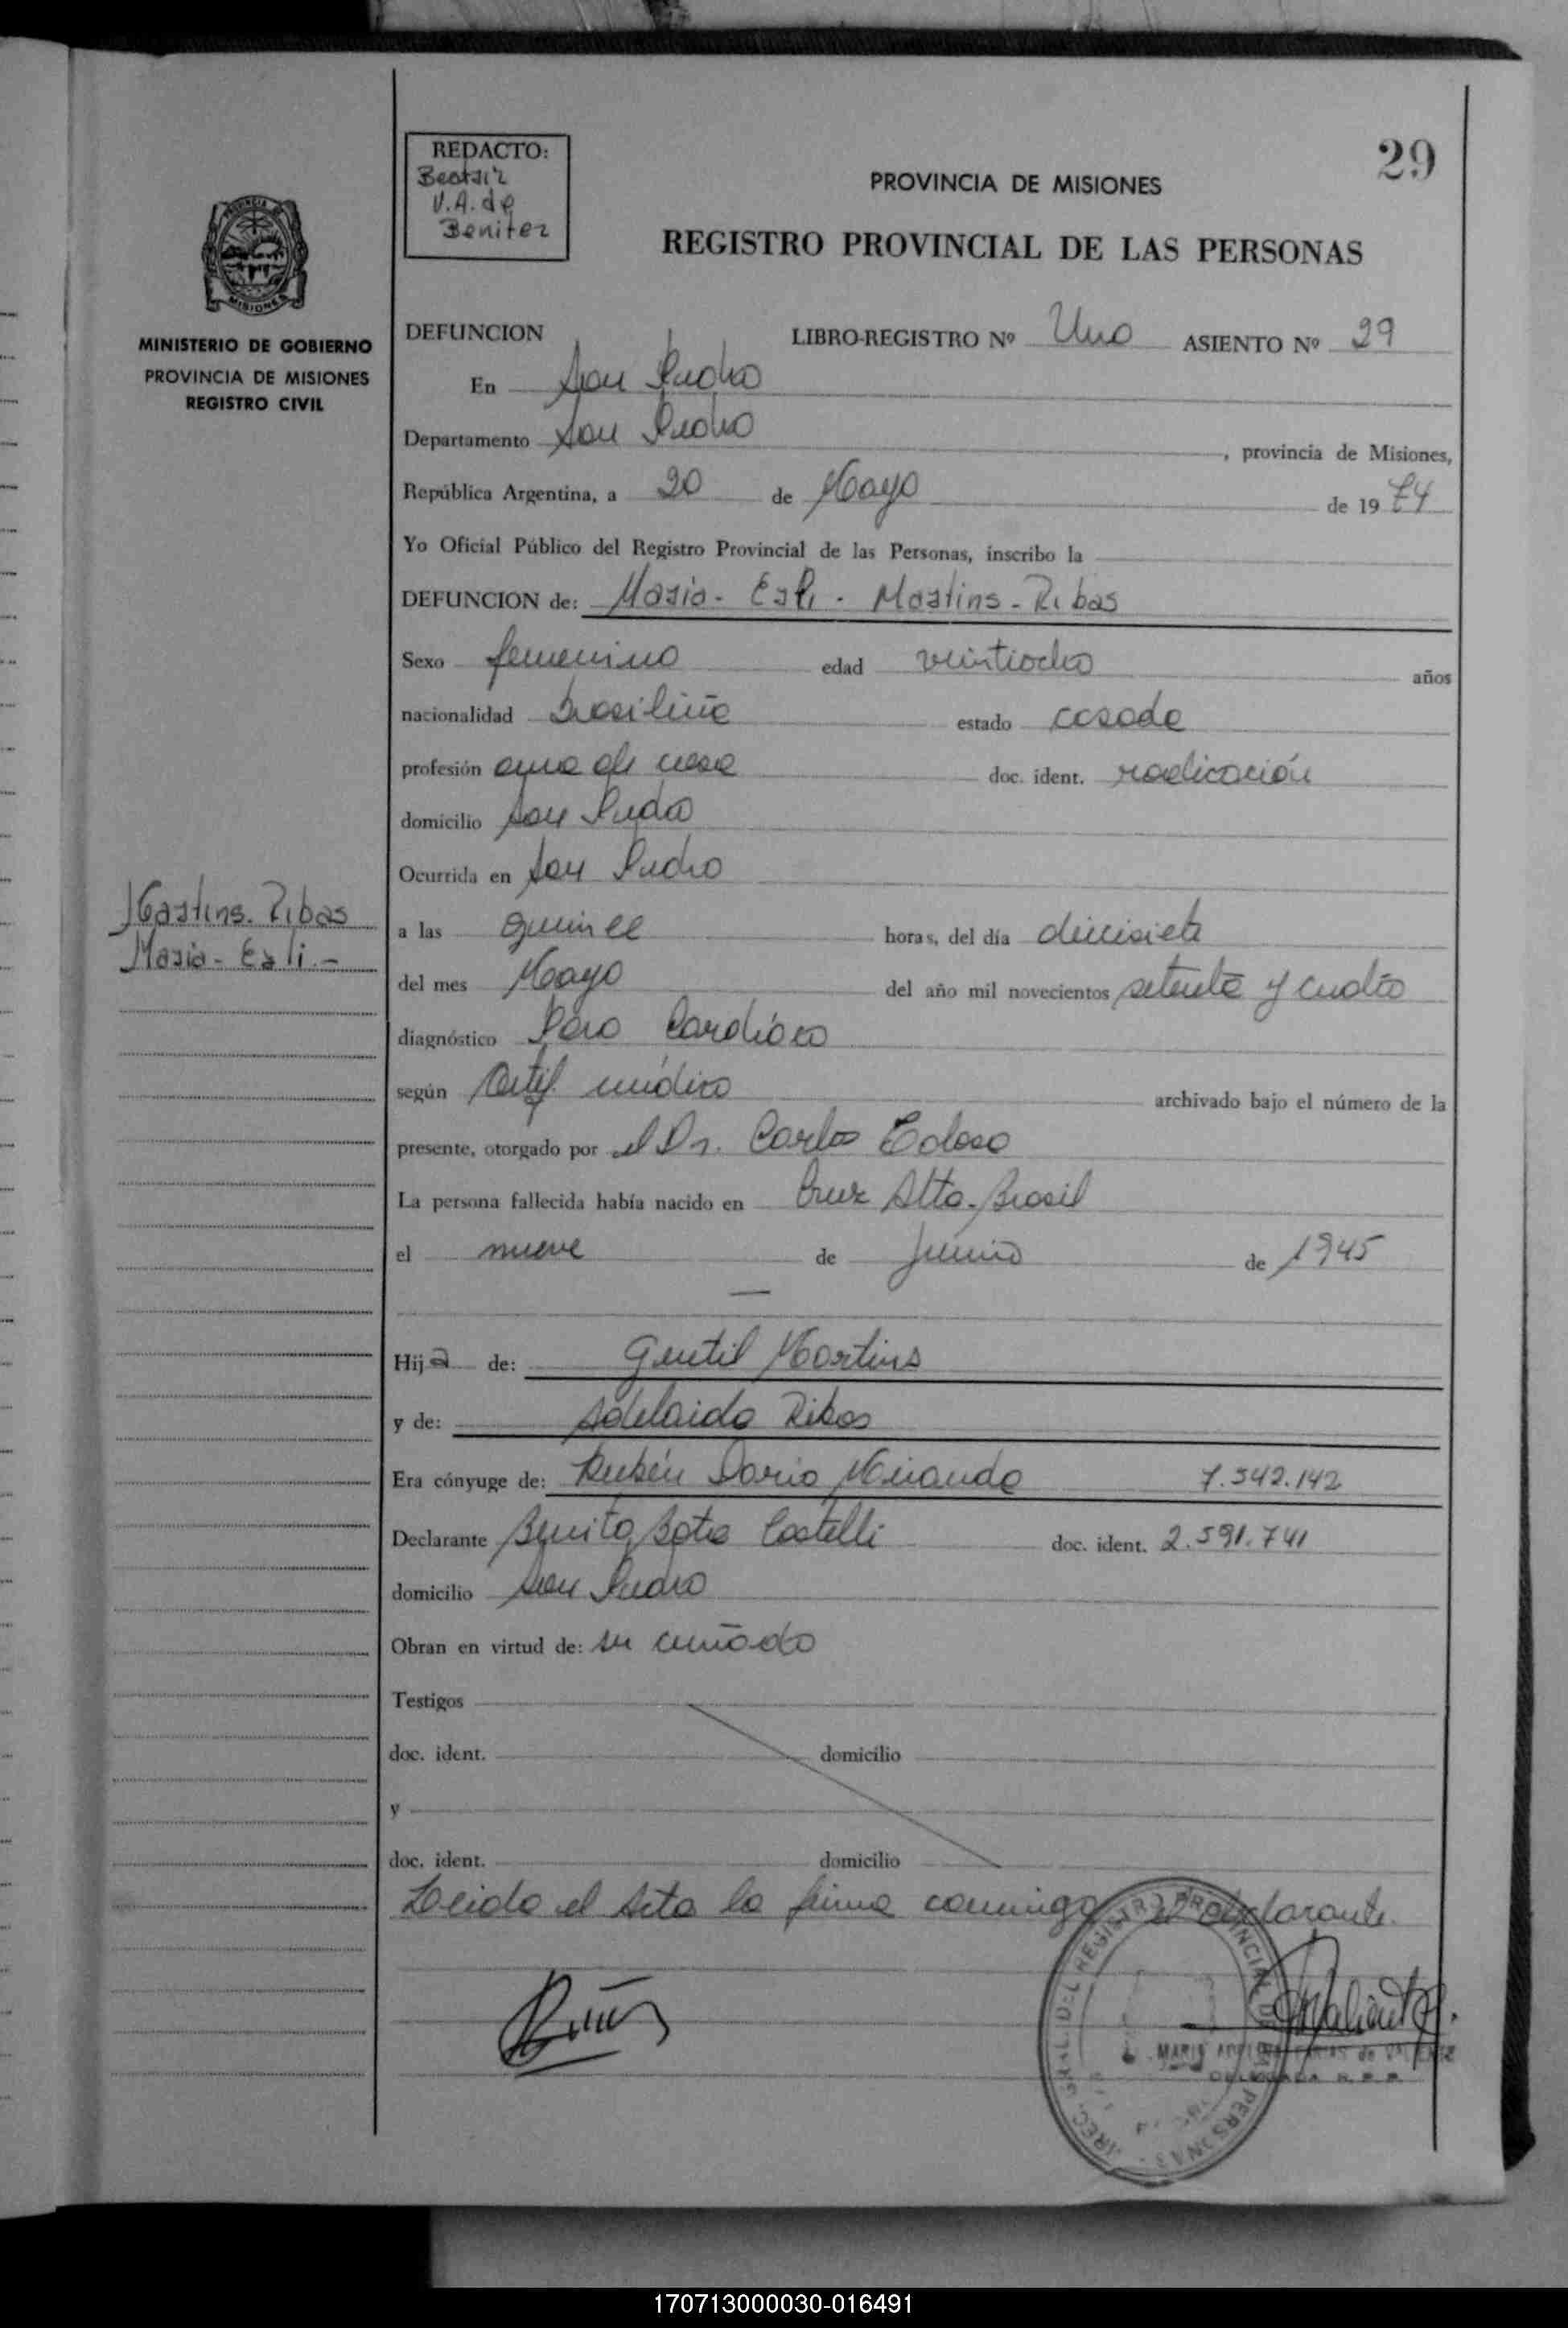 29
REDACTO:
Beatriz
V.A. de
Benitez
PROVINCIA DE MISIONES
REGISTRO PROVINCIAL DE LAS PERSONAS
MINISTERIO DE GOBIERNO
PROVINCIA DE MISIONES
REGISTRO CIVIL
DEFUNCION LIBRO-REGISTRO Nº Uno ASIENTO Nº 29
En San Pedro
Departamento San Pedro, provincia de Misiones,
República Argentina, a 20 de Mayo de 1974
Yo Oficial Público del Registro Provincial de las Personas, inscribo la
DEFUNCION de: Maria - Esli - Martins - Ribas
Sexo femenino edad veintiocho años
nacionalidad brasileña estado casada
profesión ama de casa doc. ident. radicación
domicilio San Pedro
Ocurrida en San Pedro
Martins. Ribas
Maria - Esli.-
a las quince horas, del día diecisiete
del mes Mayo del año mil novecientos setenta y cuatro
diagnóstico Paro Cardíaco
según Certif. médico archivado bajo el número de la
presente, otorgado por el Dr. Carlos Toloso
La persona fallecida había nacido en Cruz Alta - Brasil
el nueve de Junio de 1945
Hija de: Gentil Martins
y de: Adelaida Ribas
Era cónyuge de: Rubén Dario Miranda 7.542.142
Declarante Benito Sotis Castelli doc. ident. 2.591.741
domicilio San Pedro
Obran en virtud de: su cuñado
Testigos
doc. ident. domicilio
y
doc. ident. domicilio
Leida el Acta la firma conmigo el declarante.
DIREC. GRAL. DEL REGISTRO PROVINCIAL DE LAS PERSONAS
MARIA de VALIENTE
DELEGADA R. P. P.
170713000030-016491